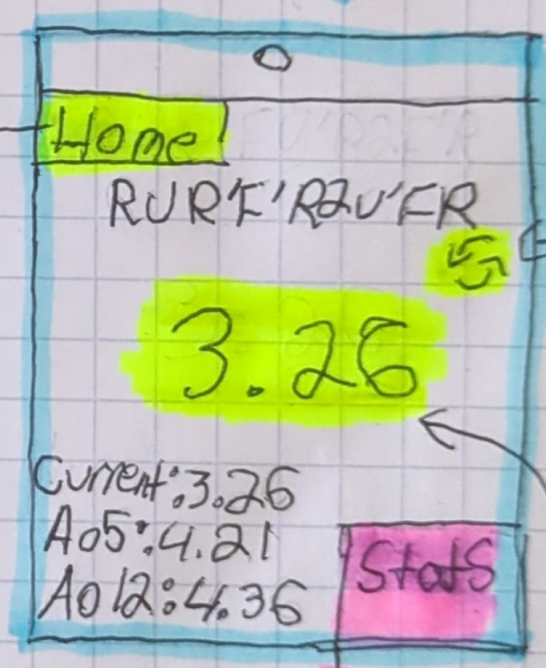 Home
RUR'F'R2U'FR
3.26
Current:3.26
Ao5:4.21
Ao12:4.36
Stats